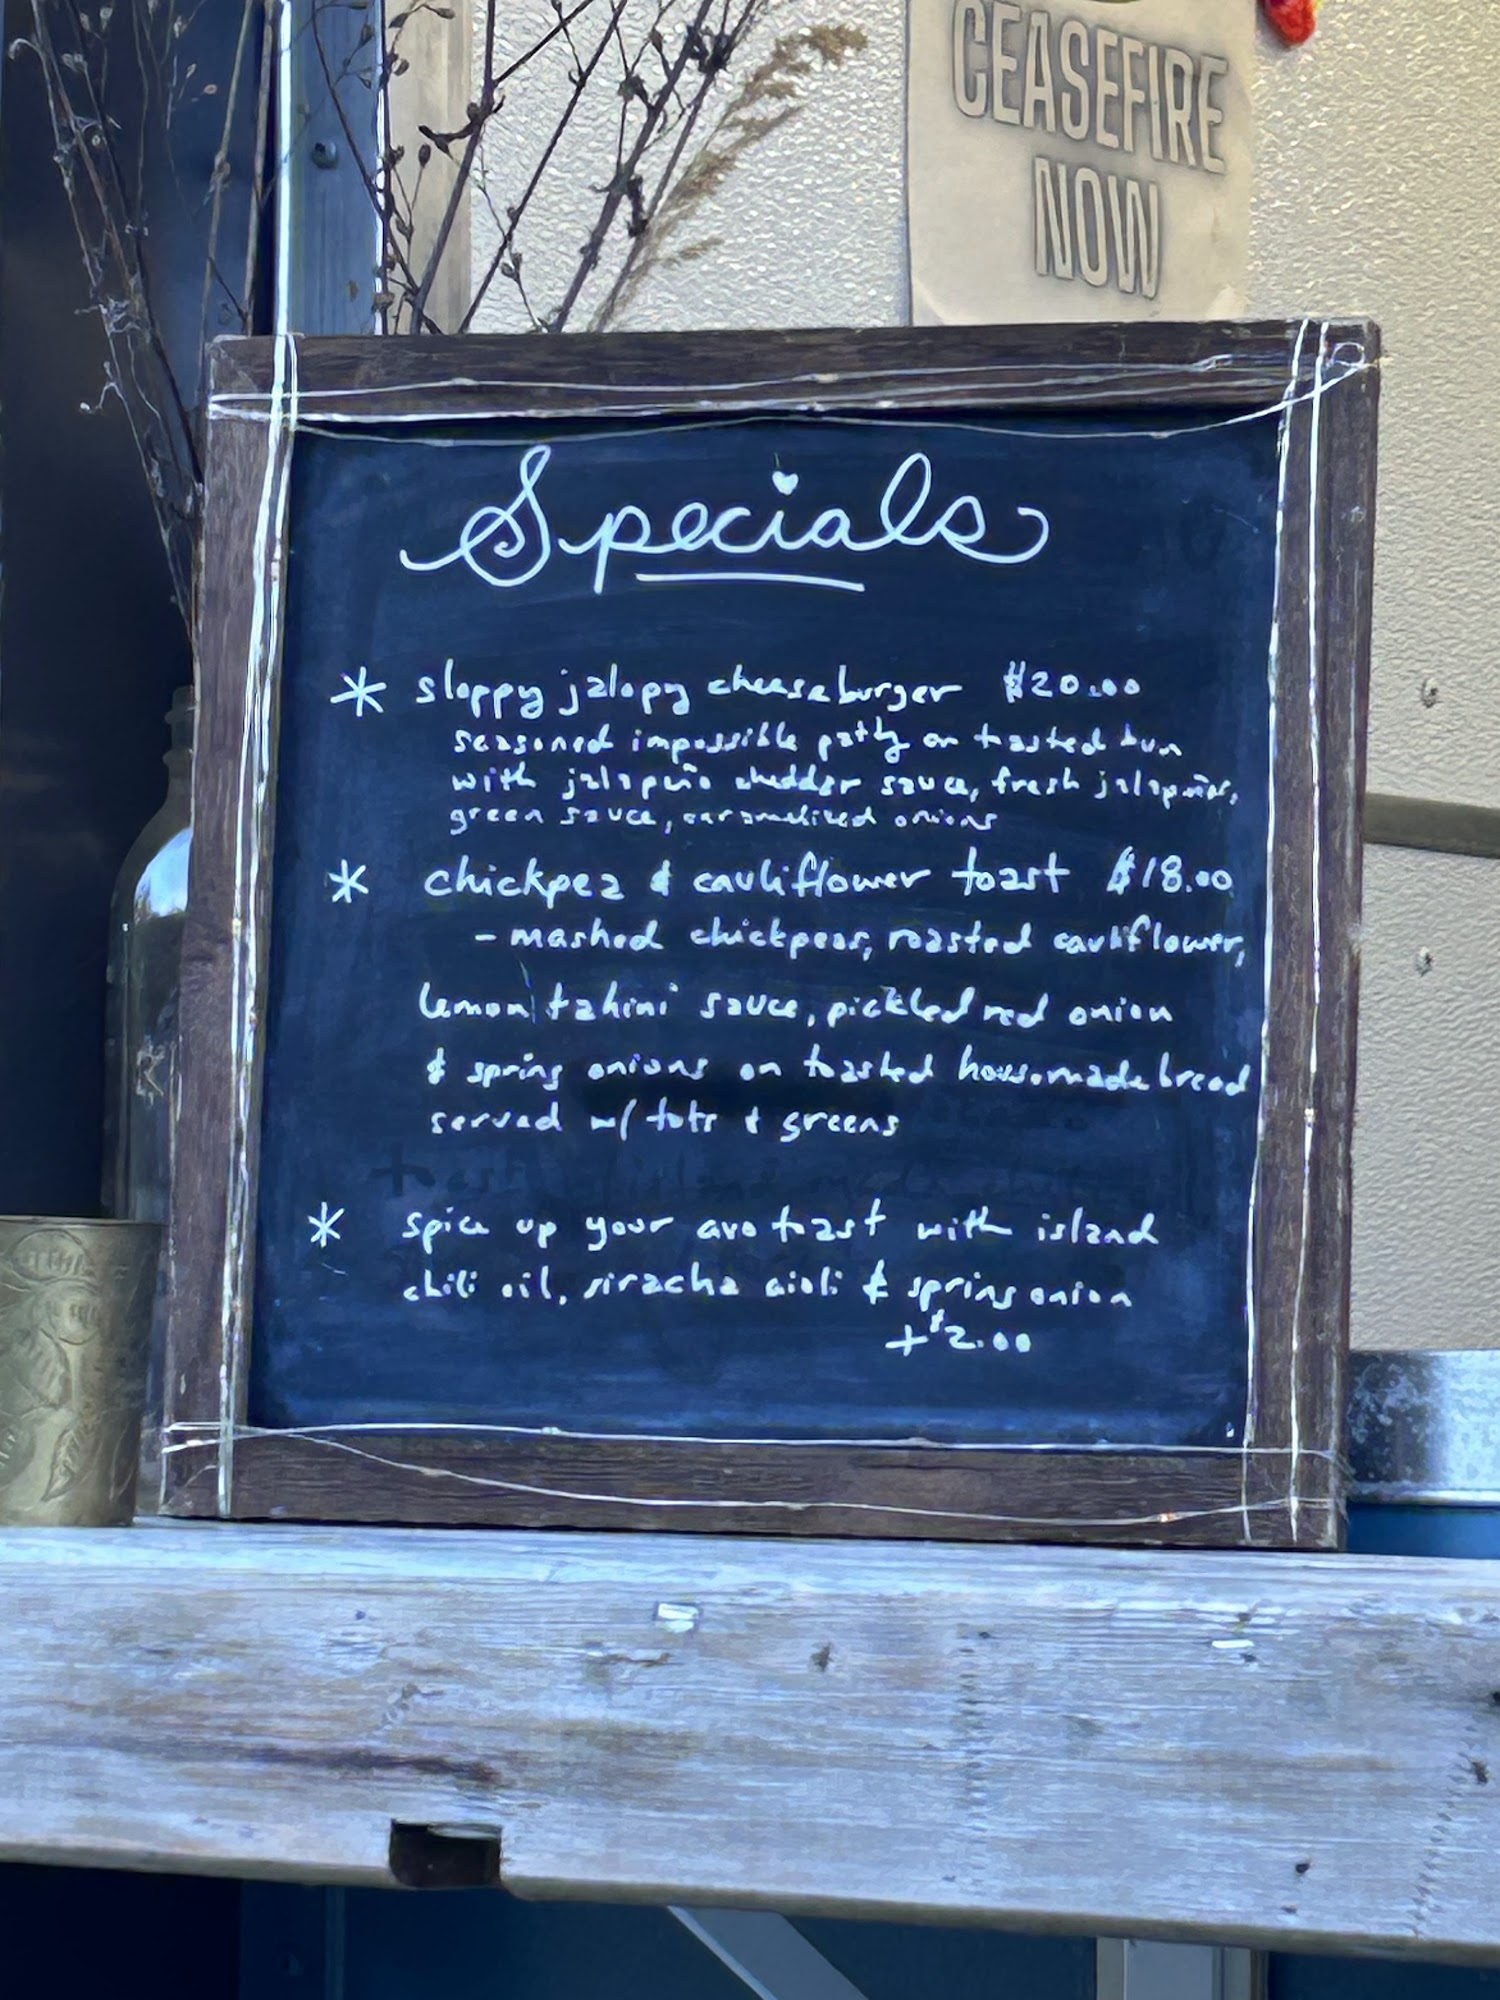 CEASEFIRE
NOW
Specials
* sloppy jalopy cheeseburger $20.00
seasoned impossible patty on toasted bun
with jalapeño cheddar sauce, fresh jalapeños,
green sauce, caramelized onions
* chickpea & cauliflower toast $18.00
- mashed chickpeas, roasted cauliflower,
lemon tahini sauce, pickled red onion
& spring onions on toasted housemade bread
served w/ tots & greens
* spice up your avo toast with island
chili oil, siracha aioli & spring onion
+$2.00